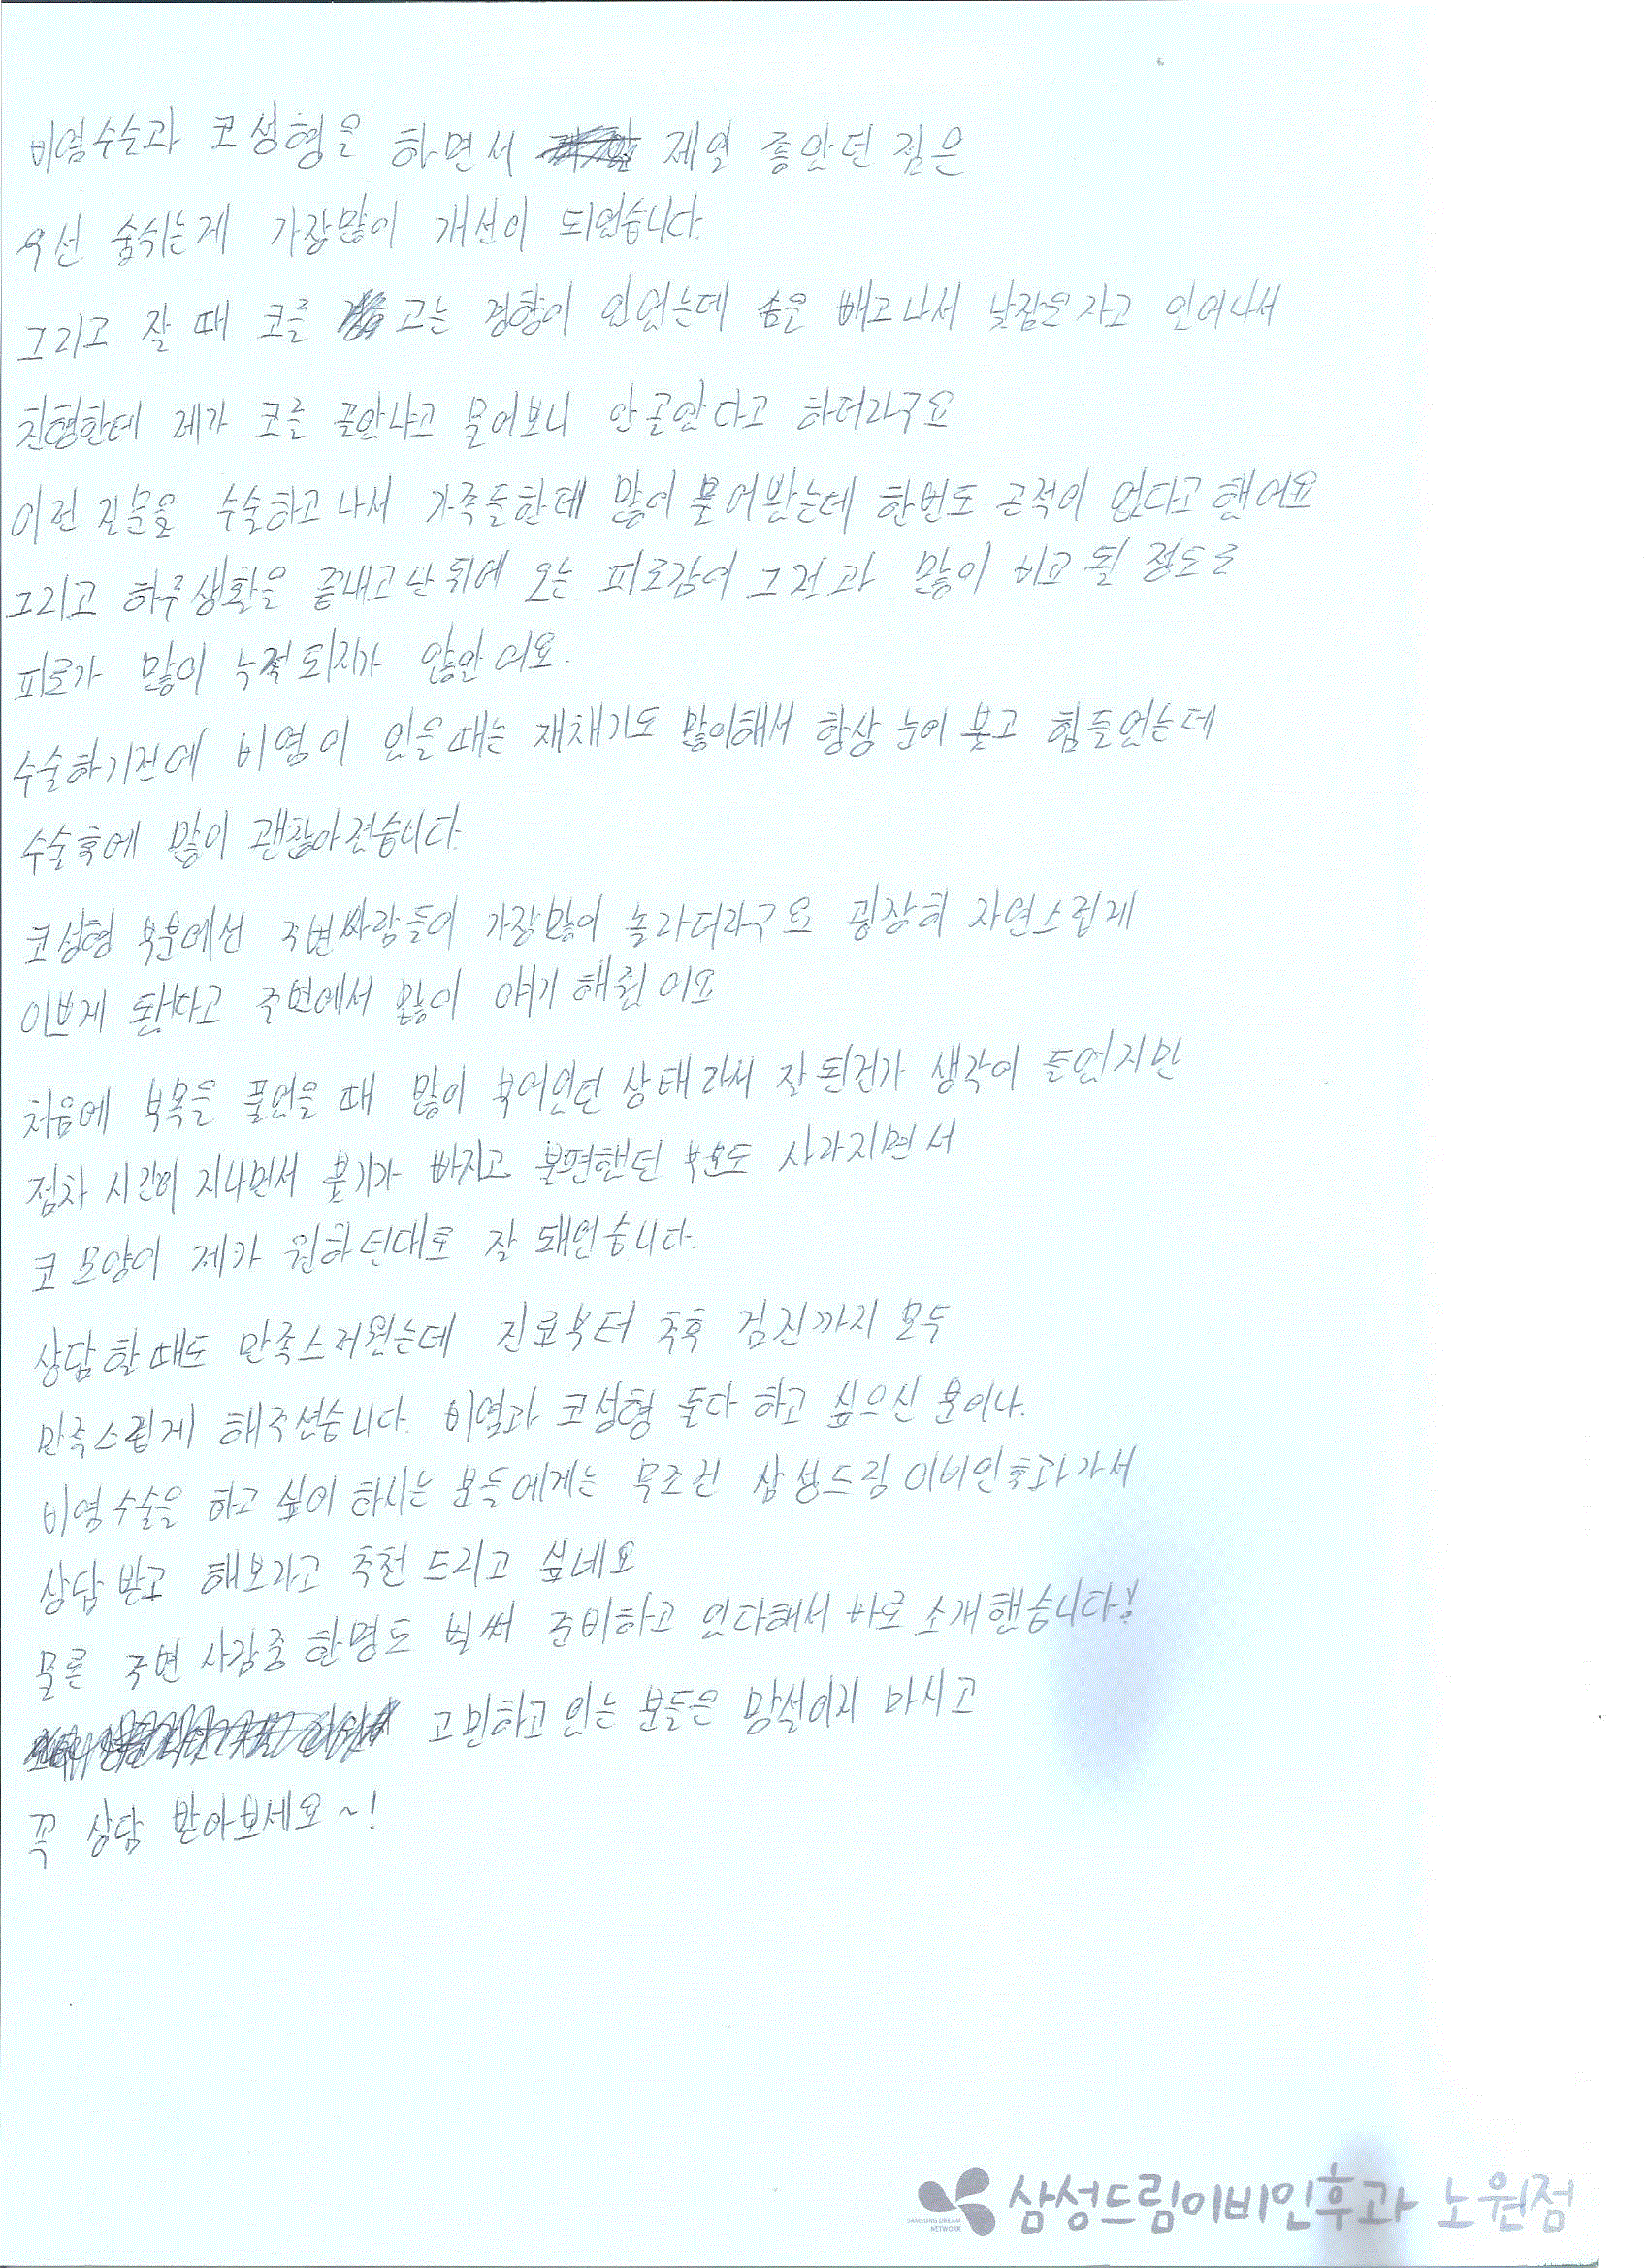 비염수술과 코성형을 하면서 제일 좋았던 점은
우선 숨쉬는게 가장많이 개선이 되었습니다.
그리고 잘 때 코를 고는 경향이 있었는데 솜을 빼고나서 낮잠을자고 일어나서
친형한테 제가 코를 골았냐고 물어보니 안골았다고 하더라구요
이런 질문을 수술하고나서 가족들한테 많이 물어봤는데 한번도 곤적이 없다고 했어요
그리고 하루생활을 끝내고난뒤에 오는 피로감이 그전과 많이 비교될 정도로
피로가 많이 누적되지가 않았어요.
수술하기전에 비염이 있을때는 재채기도 많이해서 항상 눈이 붓고 힘들었는데
수술후에 많이 괜찮아졌습니다.
코성형 부분에선 주변사람들이 가장많이 놀라더라구요 굉장히 자연스럽게
이쁘게 됐다고 주변에서 많이 얘기해줬어요
처음에 부목을 풀었을 때 많이 부어있던 상태라서 잘된건가 생각이 들었지만
점차 시간이 지나면서 붓기가 빠지고 불편했던 부분도 사라지면서
코모양이 제가 원하던대로 잘 돼었습니다.
상담할때도 만족스러웠는데 진료부터 추후 검진까지 모두
만족스럽게 해주셨습니다. 비염과 코성형 둘다 하고 싶으신 분이나.
비염수술을 하고 싶어하시는 분들에게는 무조건 삼성드림이비인후과가서
상담받고 해보라고 추천드리고 싶네요
물론 주변 사람중 한명도 벌써 준비하고 있다해서 바로 소개했습니다!
고민하고있는 분들은 망설이지 마시고
꼭 상담 받아보세요~!
SAMSUNG DREAM NETWORK 삼성드림이비인후과 노원점